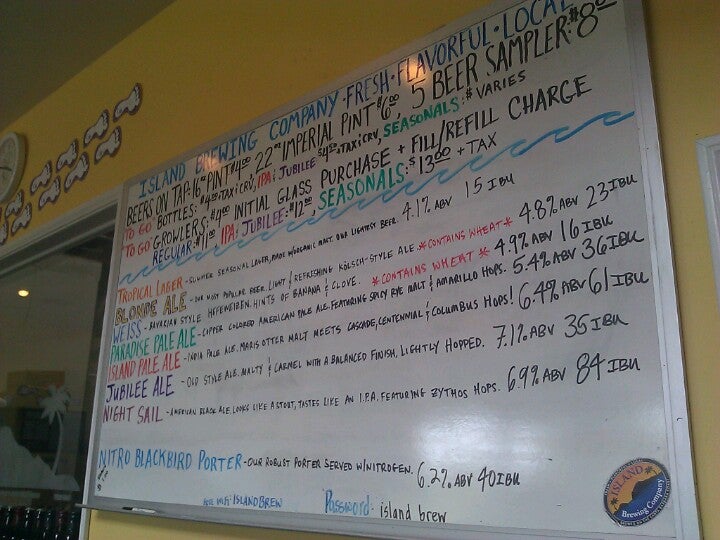 ISLAND BREWING COMPANY · FRESH · FLAVORFUL · LOCAL
BEERS ON TAP: 16oz PINT $4.00, 22oz IMPERIAL PINT $6.00, 5 BEER SAMPLER: $8.00
"TO GO" BOTTLES: $4.00 + TAX & CRV, IPA & JUBILEE $4.00 + TAX & CRV, SEASONALS: $ VARIES
"TO GO" GROWLERS: $4.00 INITIAL GLASS PURCHASE + FILL/REFILL CHARGE
REGULAR: $11.00, IPA & JUBILEE: $12.00, SEASONALS: $13.00 + TAX
TROPICAL LAGER - SUMMER SEASONAL LAGER, MADE W/ORGANIC MALT. OUR LIGHTEST BEER. 4.1% ABV 15 IBU
BLONDE ALE - OUR MOST POPULAR BEER. LIGHT & REFRESHING KÖLSCH-STYLE ALE. *CONTAINS WHEAT* 4.8% ABV 23 IBU
WEISS - BAVARIAN STYLE HEFEWEIZEN. HINTS OF BANANA & CLOVE. *CONTAINS WHEAT* 4.9% ABV 16 IBU
PARADISE PALE ALE - COPPER COLORED AMERICAN PALE ALE. FEATURING SPICY RYE MALT & AMARILLO HOPS. 5.4% ABV 36 IBU
ISLAND PALE ALE - INDIA PALE ALE. MARIS OTTER MALT MEETS CASCADE, CENTENNIAL & COLUMBUS HOPS! 6.4% ABV 61 IBU
JUBILEE ALE - OLD STYLE ALE. MALTY & CARMEL WITH A BALANCED FINISH, LIGHTLY HOPPED. 7.1% ABV 35 IBU
NIGHT SAIL - AMERICAN BLACK ALE. LOOKS LIKE A STOUT, TASTES LIKE AN I.P.A. FEATURING ZYTHOS HOPS. 6.9% ABV 84 IBU
NITRO BLACKBIRD PORTER - OUR ROBUST PORTER SERVED W/NITROGEN. 6.2% ABV 40 IBU
FREE WiFi: ISLANDBREW Password: island brew
ISLAND
Brewing Company